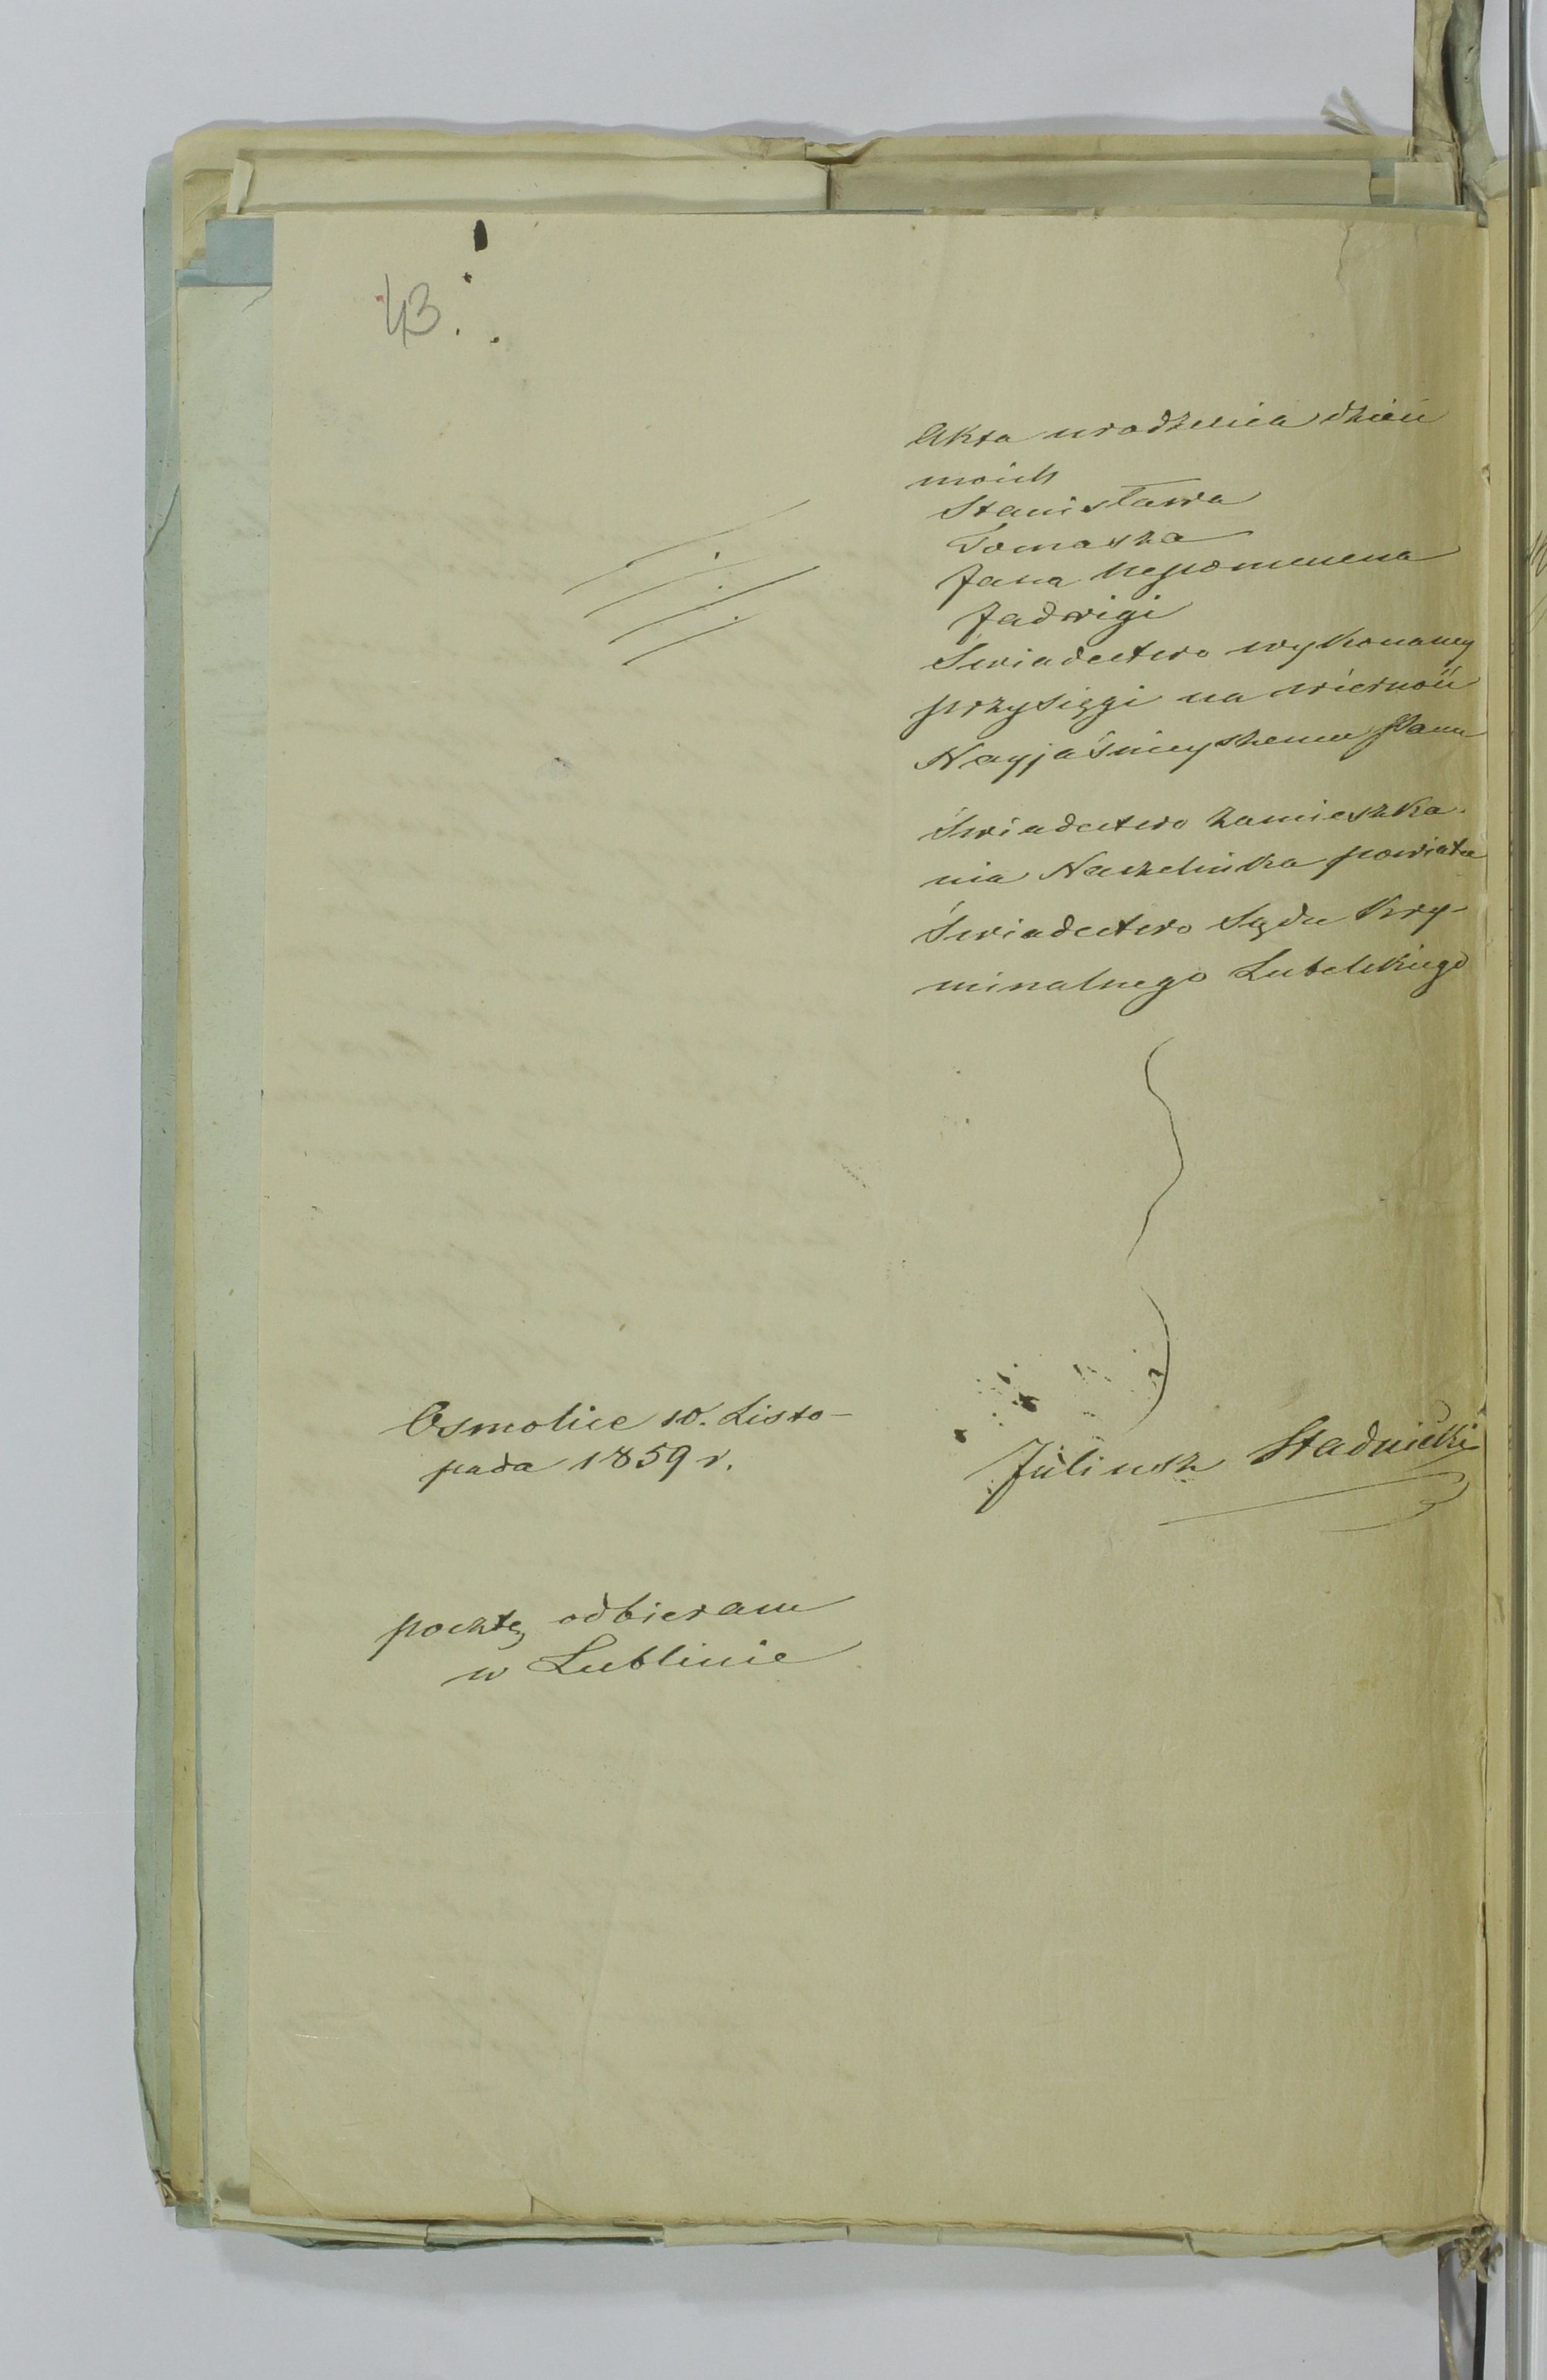 43.
Akta urodzenia dzieci
moich
Stanisława
Tomasza
Jana Nepomucena
Jadwigi
Świadectwo wykonaney
przysięgi na wierność
Nayjaśnieyszemu Panu
Świadectwo zamieszka-
nia Naczelnika powiatu
Świadectwo Sądu Kry-
minalnego Lubelskiego
Osmolice 10. Listo-
pada 1859 r.
Juliusz Stadnicki
pocztę odbieram
w Lublinie